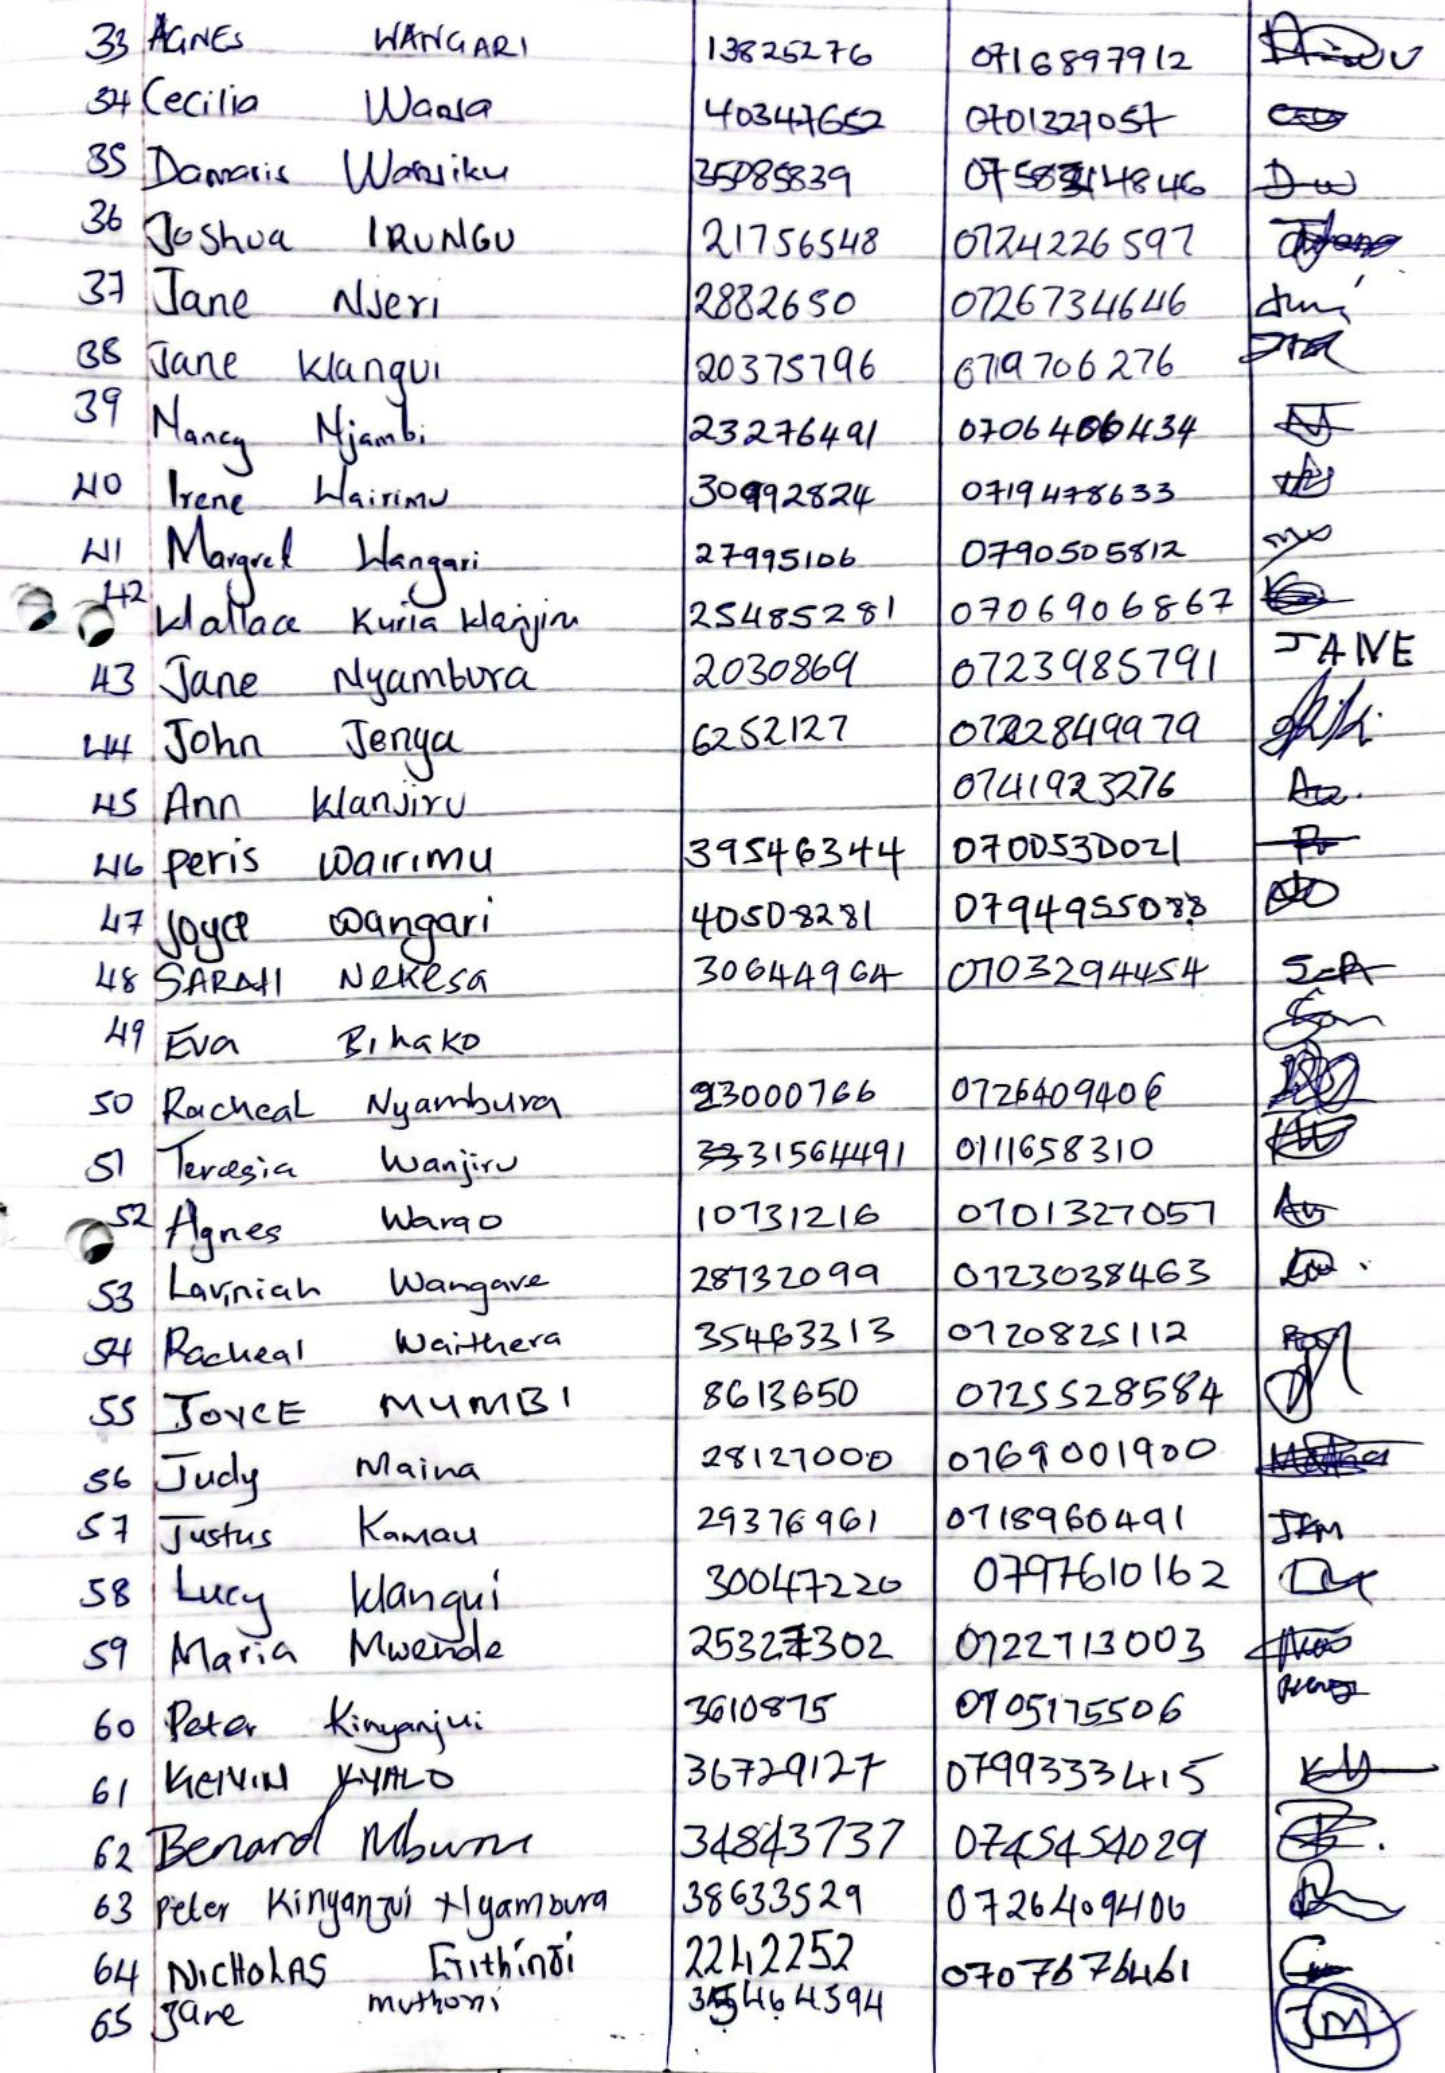 33 AGNES WANGARI 13825276 0716897912
34 Cecilia 40347652 0701327057
35 Damaris Wanjiku 35085839
36 Joshua IRUNGU 21756548 0724226597
37 Jane Njeri 2882650 0726734646
38 Jane Wangui 20375796 0719706276
39 Nancy Njambi 23276491 0706406434
40 Irene Wairimu 30992824 0719478633
41 Margret Wangari 27995106 0790505812
42 Wallace Kuria Wanjiru 25485281 0706906867
43 Jane Nyambura 2030869 0723985791 JANE
44 John Jenga 6252127 0722849979
45 Ann Wanjiru 0741923276
46 peris wairimu 39546344 0700530021
47 Joyce wangari 40508281 0794955088
48 SARAH Nekesa 30644964 0703294454
49 Eva Bihako
50 Racheal Nyambura 23000766 0726409406
51 Terasia Wanjiru 31564491 0111658310
52 Agnes 10731216 0701327057
53 Laviniah Wangare 28732099 0723038463
54 Racheal Waithera 35463313 0720825112
55 JOYCE MUMBI 8613650 0725528584
56 Judy Maina 28127000 0769001900
57 Justus Kamau 29376961 0718960491 JKM
58 Lucy Wangui 30047220 0797610162
59 Maria Mwende 25327302 0722713003
60 Peter Kinyanjui 3610875 0705175506
61 KELVIN KYALO 36729127 0799333415
62 Benard Mburu 34843737 0745454029
63 Peter Kinyanjui Nyambura 38633529 0726409406
64 NICHOLAS Githinji 22412252 0707676461
65 Jane muthoni JM